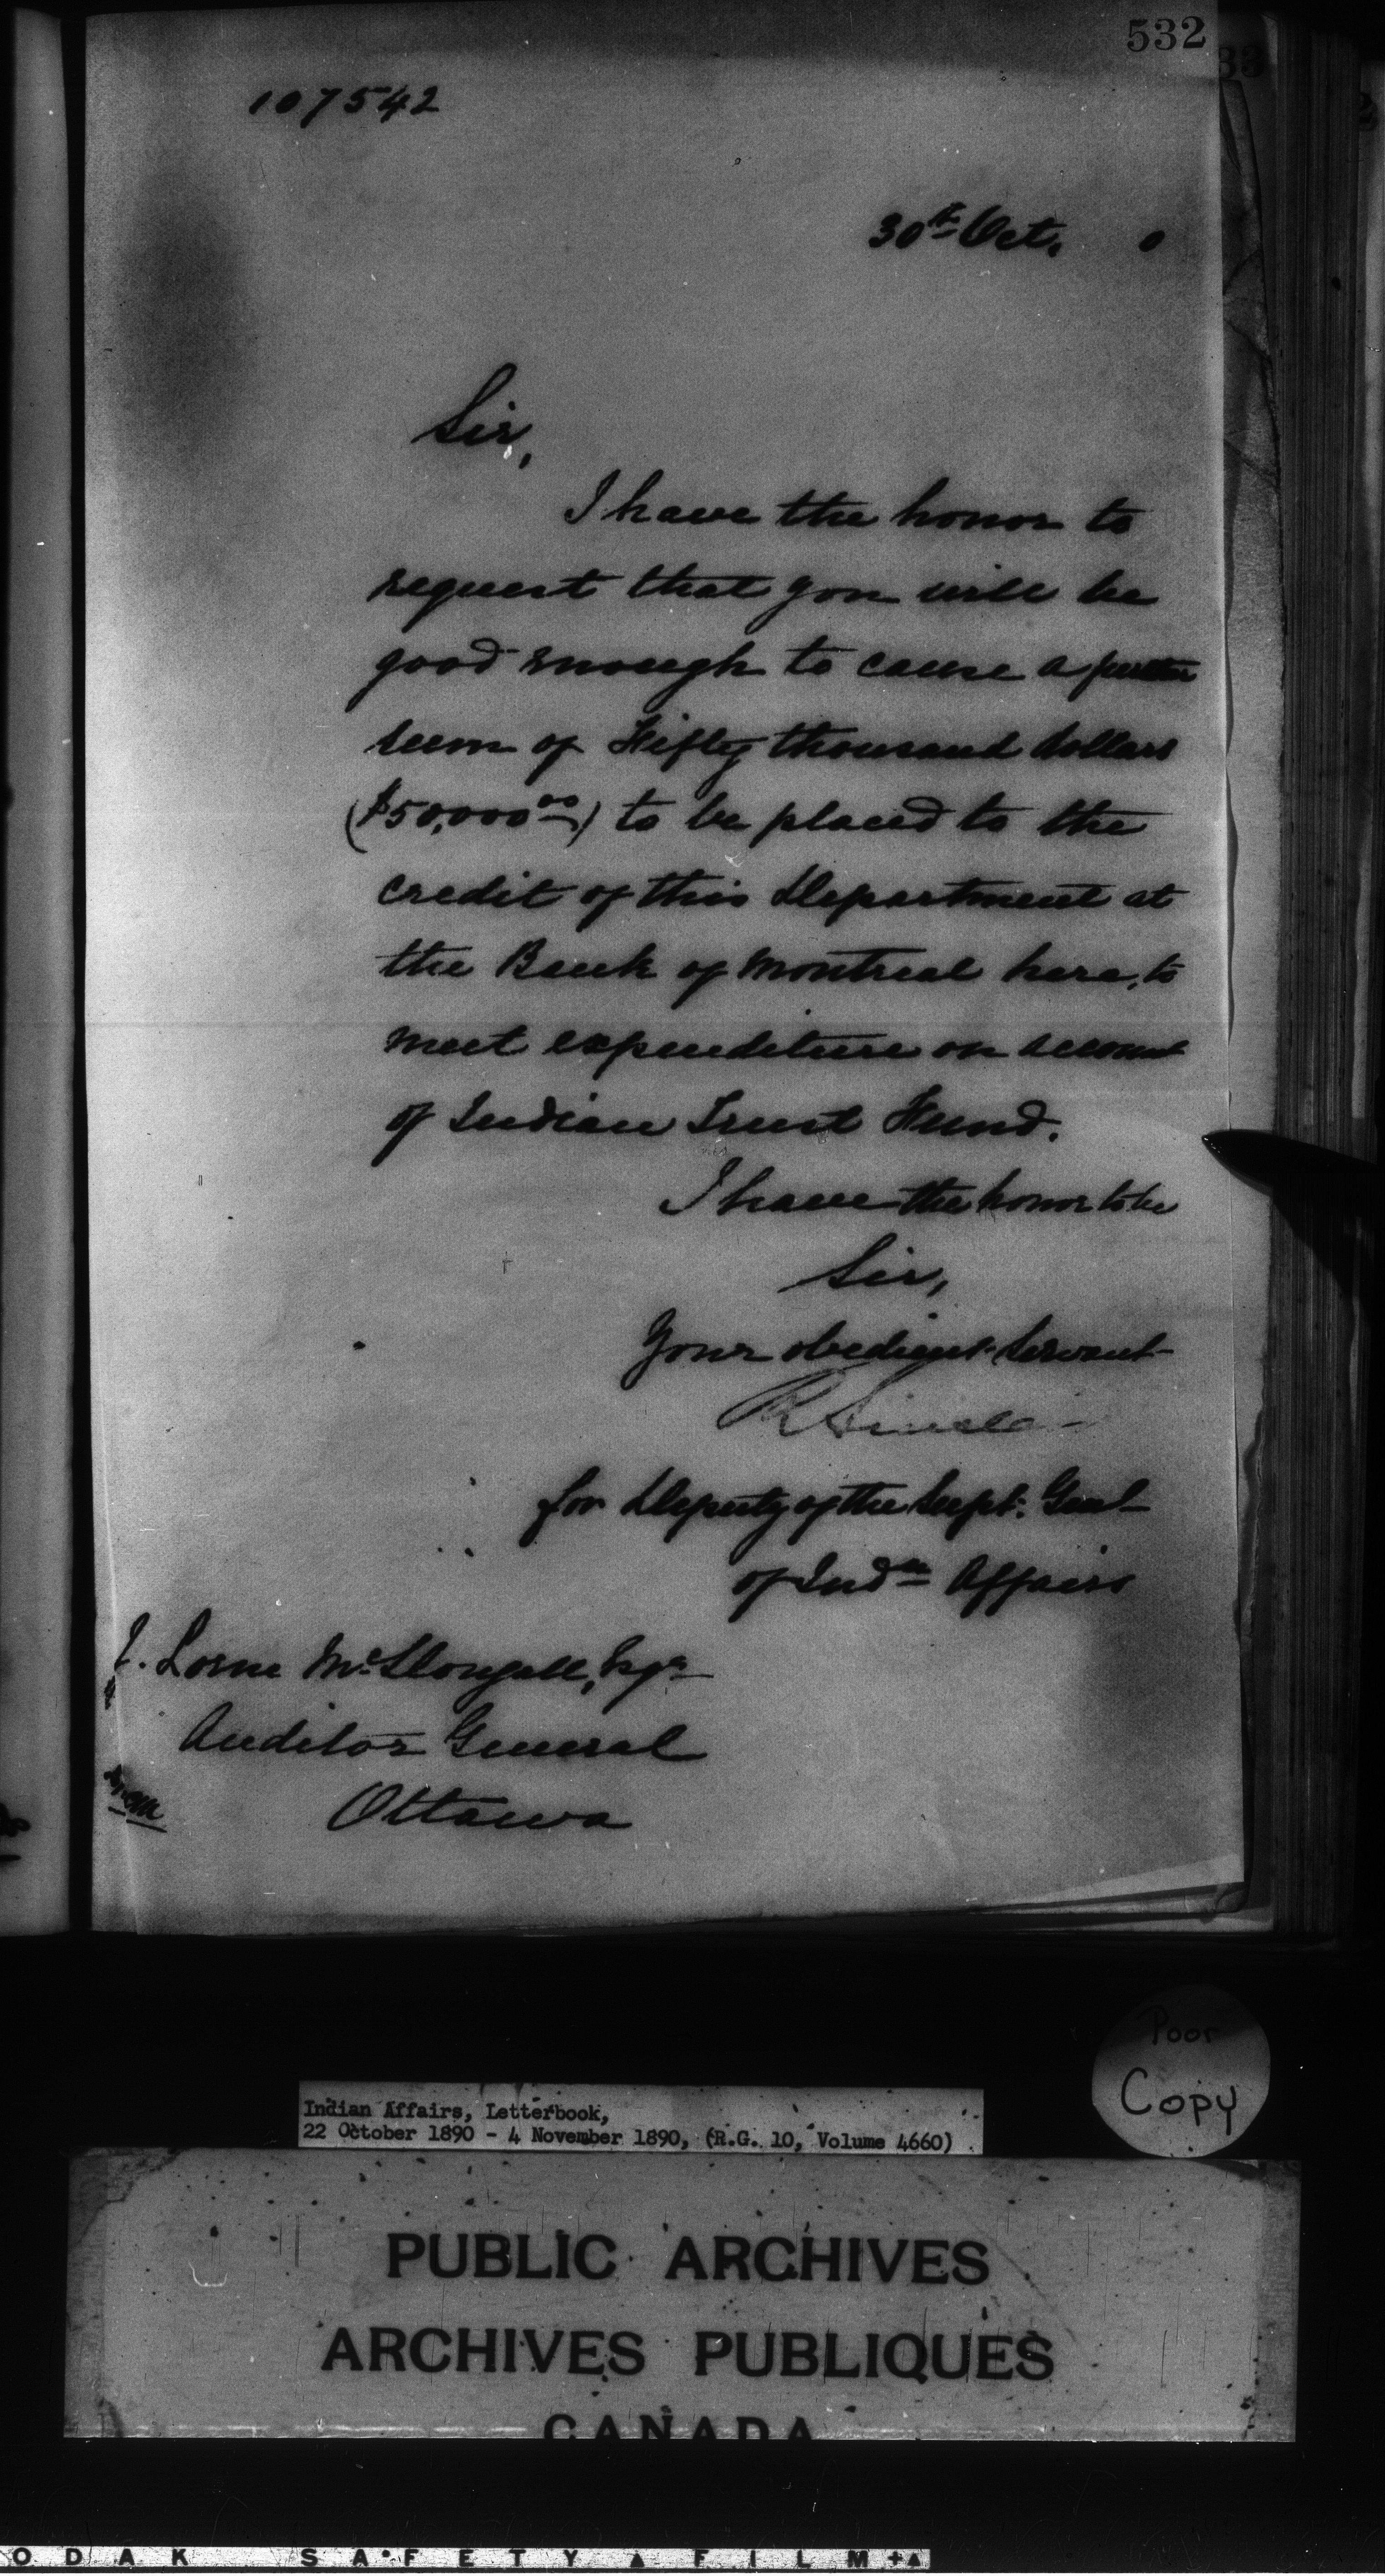 532
107542
30th Oct. 0
Sir,
I have the honor to
request that you will be
good enough to cause a further
sum of Fifty thousand dollars
($50,000.00) to be placed to the
credit of this Department at
the Bank of Montreal here, to
meet expenditure on account
of Indian Trust Fund.
I have the honor to be
Sir,
Your obedient Servant
R Sinclair
for Deputy of the Supt. Genl
of Indn Affairs
J. Lorne McDougall, Esqr
Auditor General
Ottawa
Poor
Copy
Indian Affairs, Letterbook,
22 October 1890 - 4 November 1890, (R.G. 10, Volume 4660)
PUBLIC ARCHIVES
ARCHIVES PUBLIQUES
CANADA
ODAK SAFETY FILM